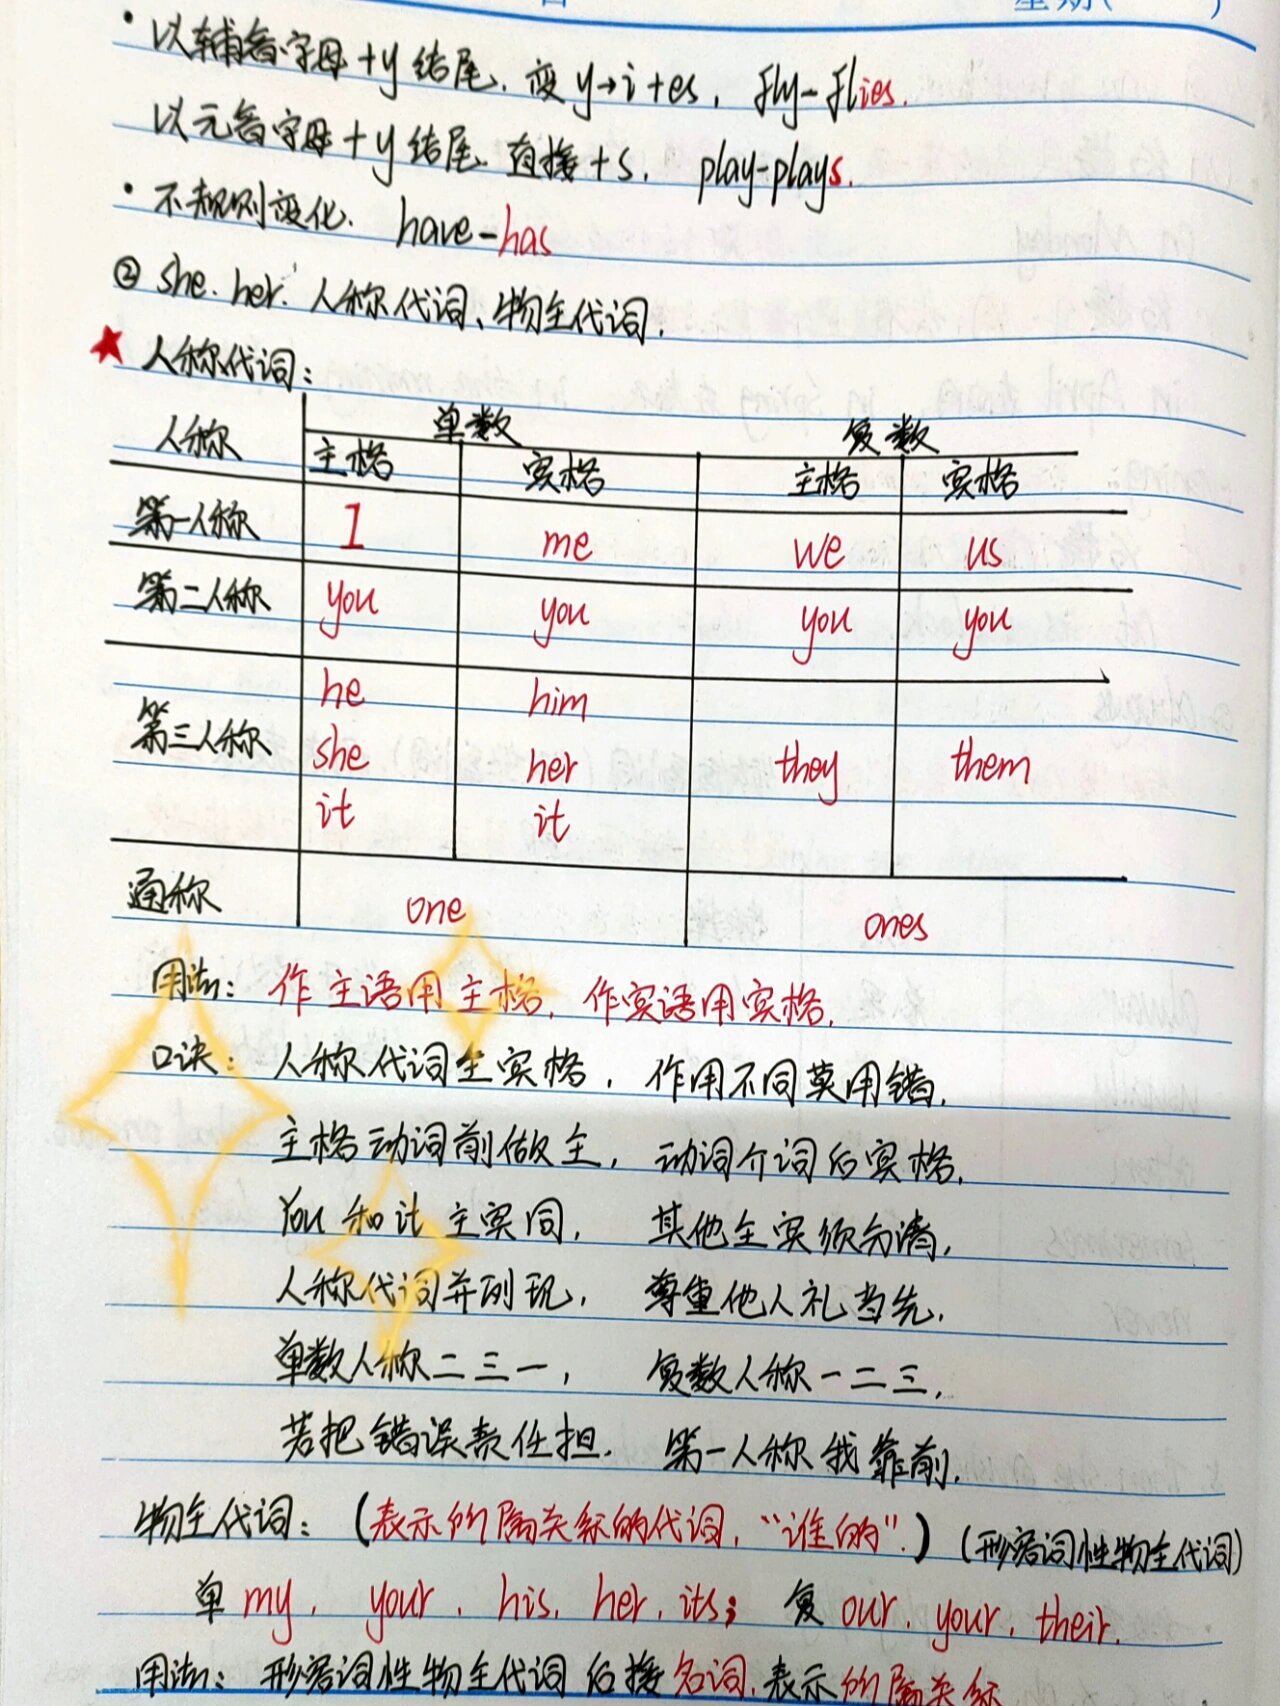 星期( )
· 以辅音字母+y结尾. 变y→i+es, fly-flies.
以元音字母+y结尾. 直接+s. play-plays.
· 不规则变化. have-has
② she. her. 人称代词、物主代词.
★ 人称代词:
人称 单数 复数
主格 宾格 主格 宾格
第一人称 I me we us
第二人称 you you you you
第三人称 he him
she her they them
it it
通称 one ones
用法: 作主语用主格, 作宾语用宾格.
口诀: 人称代词主宾格, 作用不同莫用错.
主格动词前做主, 动词介词后宾格.
You 和 it 主宾同, 其他主宾须分清,
人称代词并列现, 尊重他人礼当先.
单数人称二三一, 复数人称一二三,
若把错误责任担. 第一人称我靠前.
物主代词: (表示所属关系的代词, “谁的”.) (形容词性物主代词)
单 my, your, his, her, its; 复 our, your, their.
用法: 形容词性物主代词后接名词, 表示所属关系